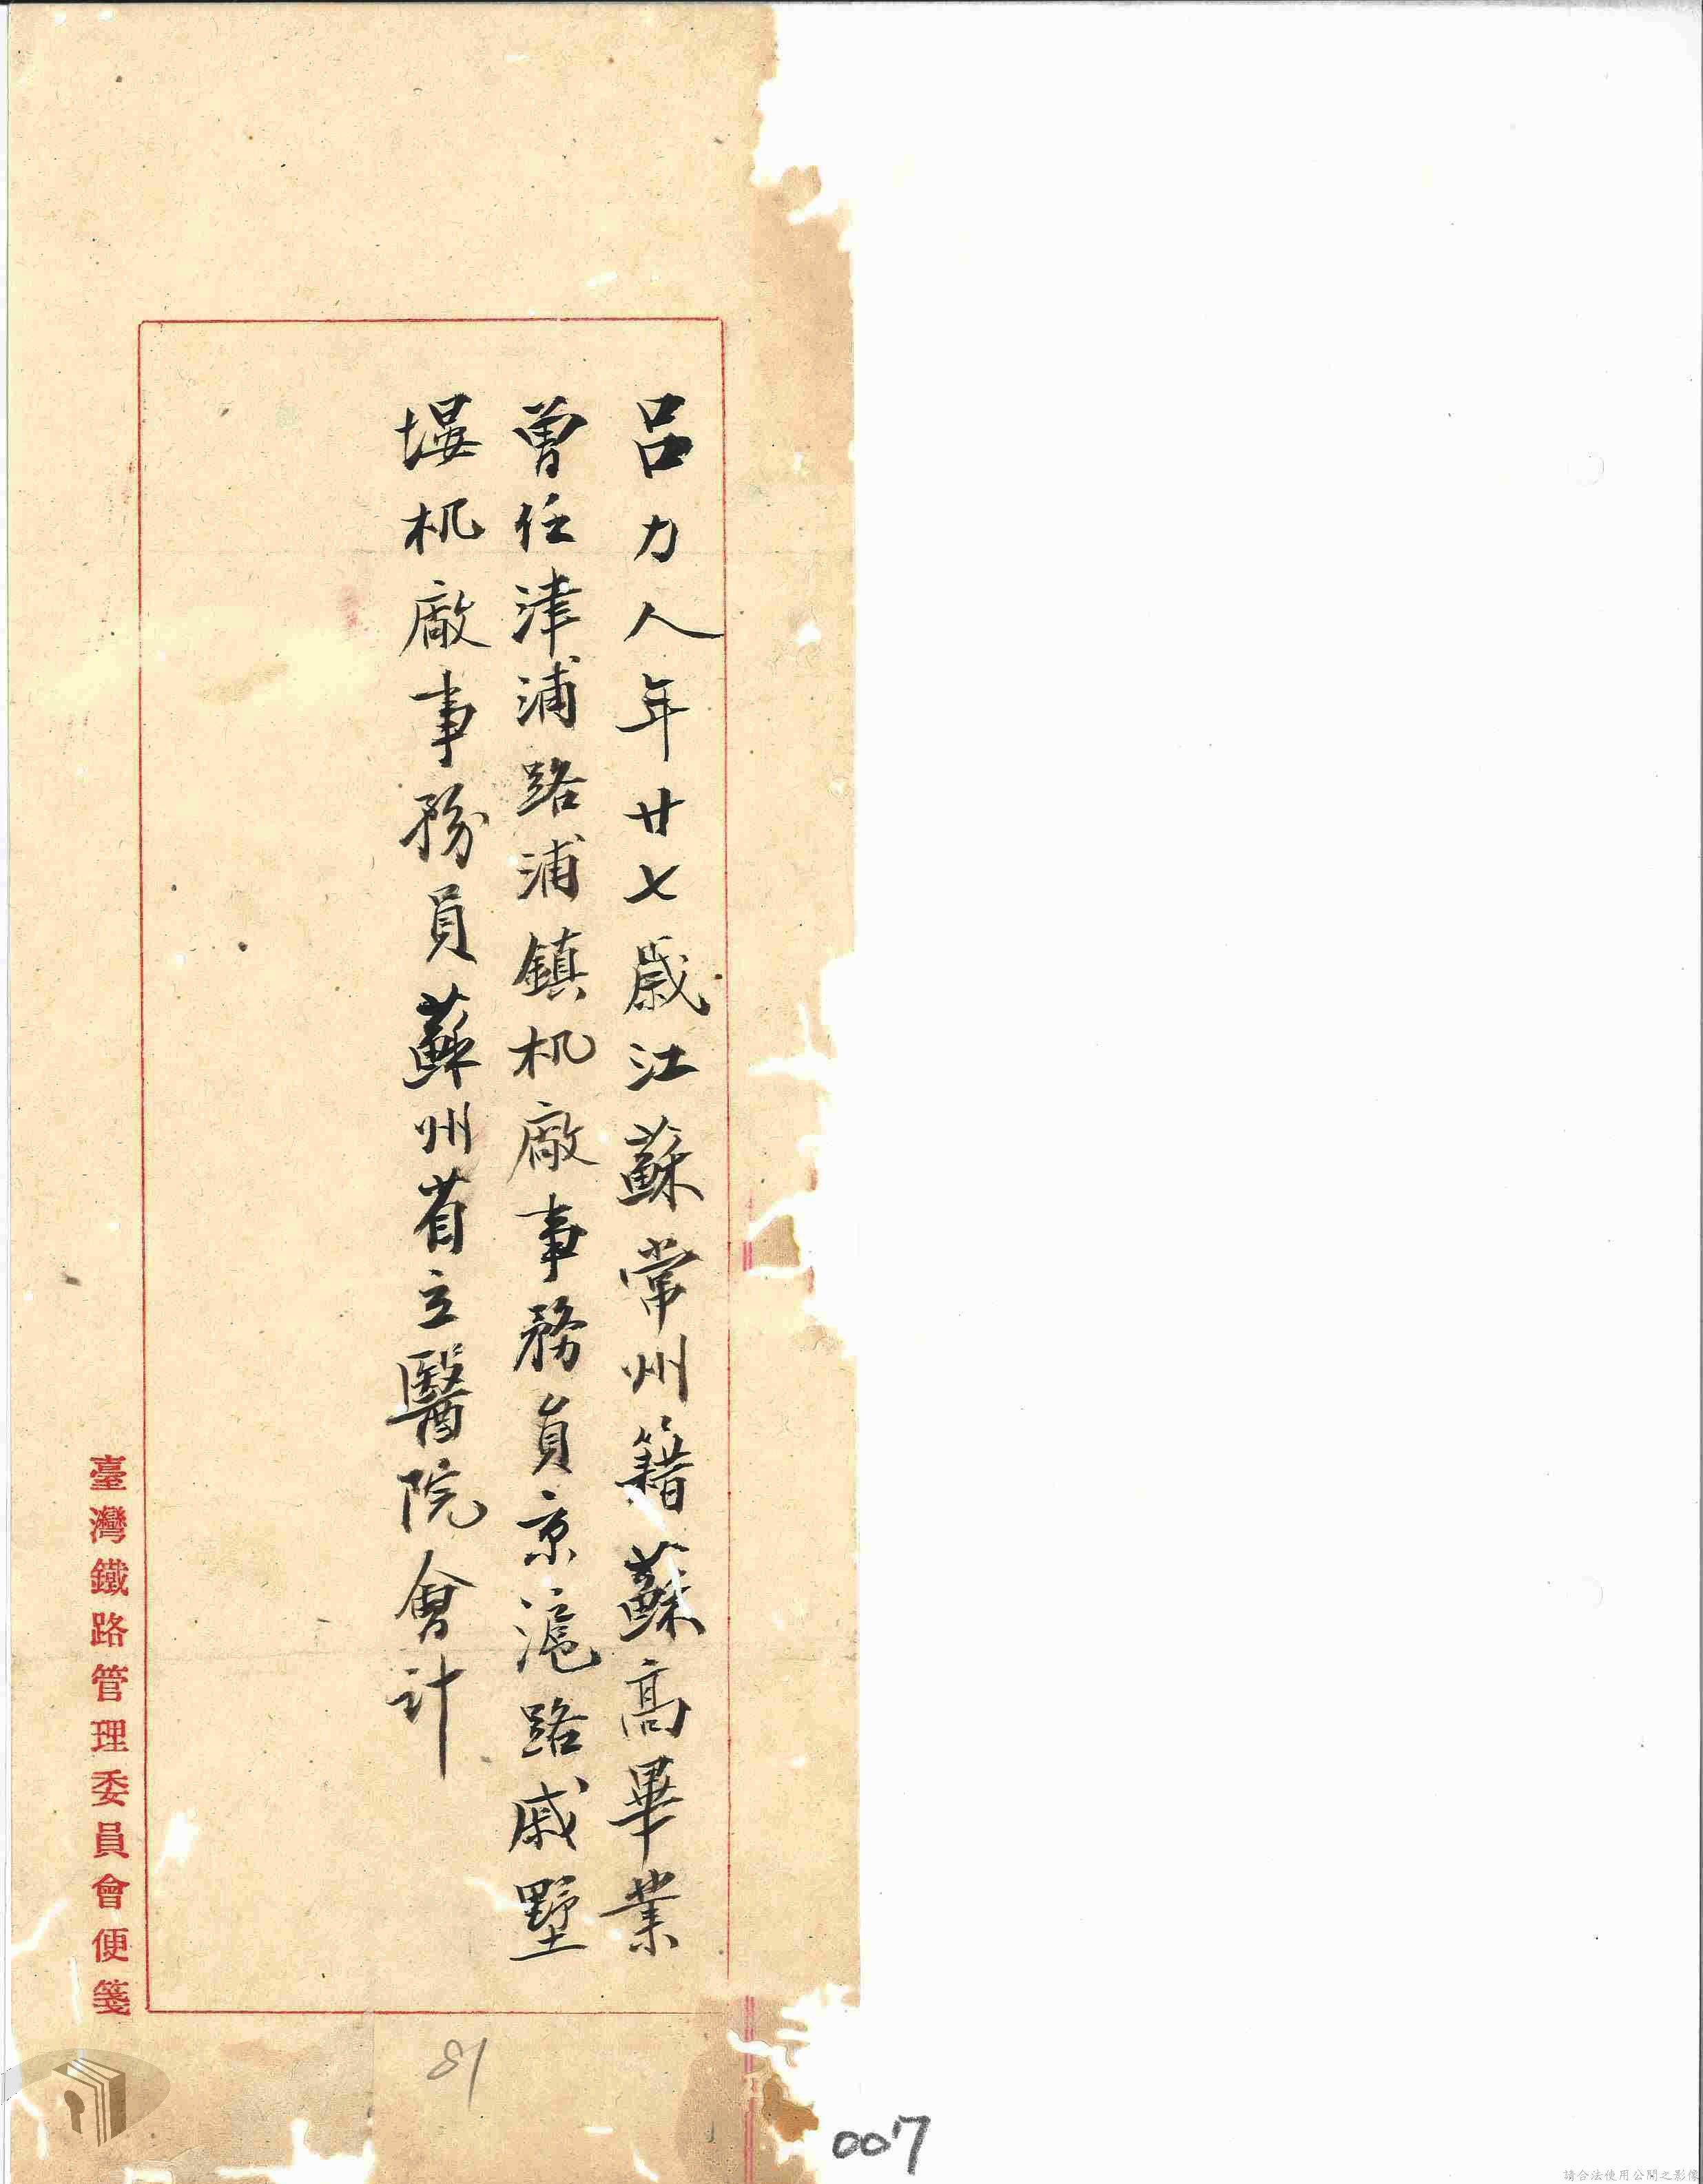 呂力人年廿七歲江蘇常州籍蘇高畢業
曾任津浦路浦鎮机廠事務員京滬路戚墅
堰机廠事務員蘇州省立醫院會計
臺灣鐵路管理委員會便箋
81
007
請合法使用公開之影像